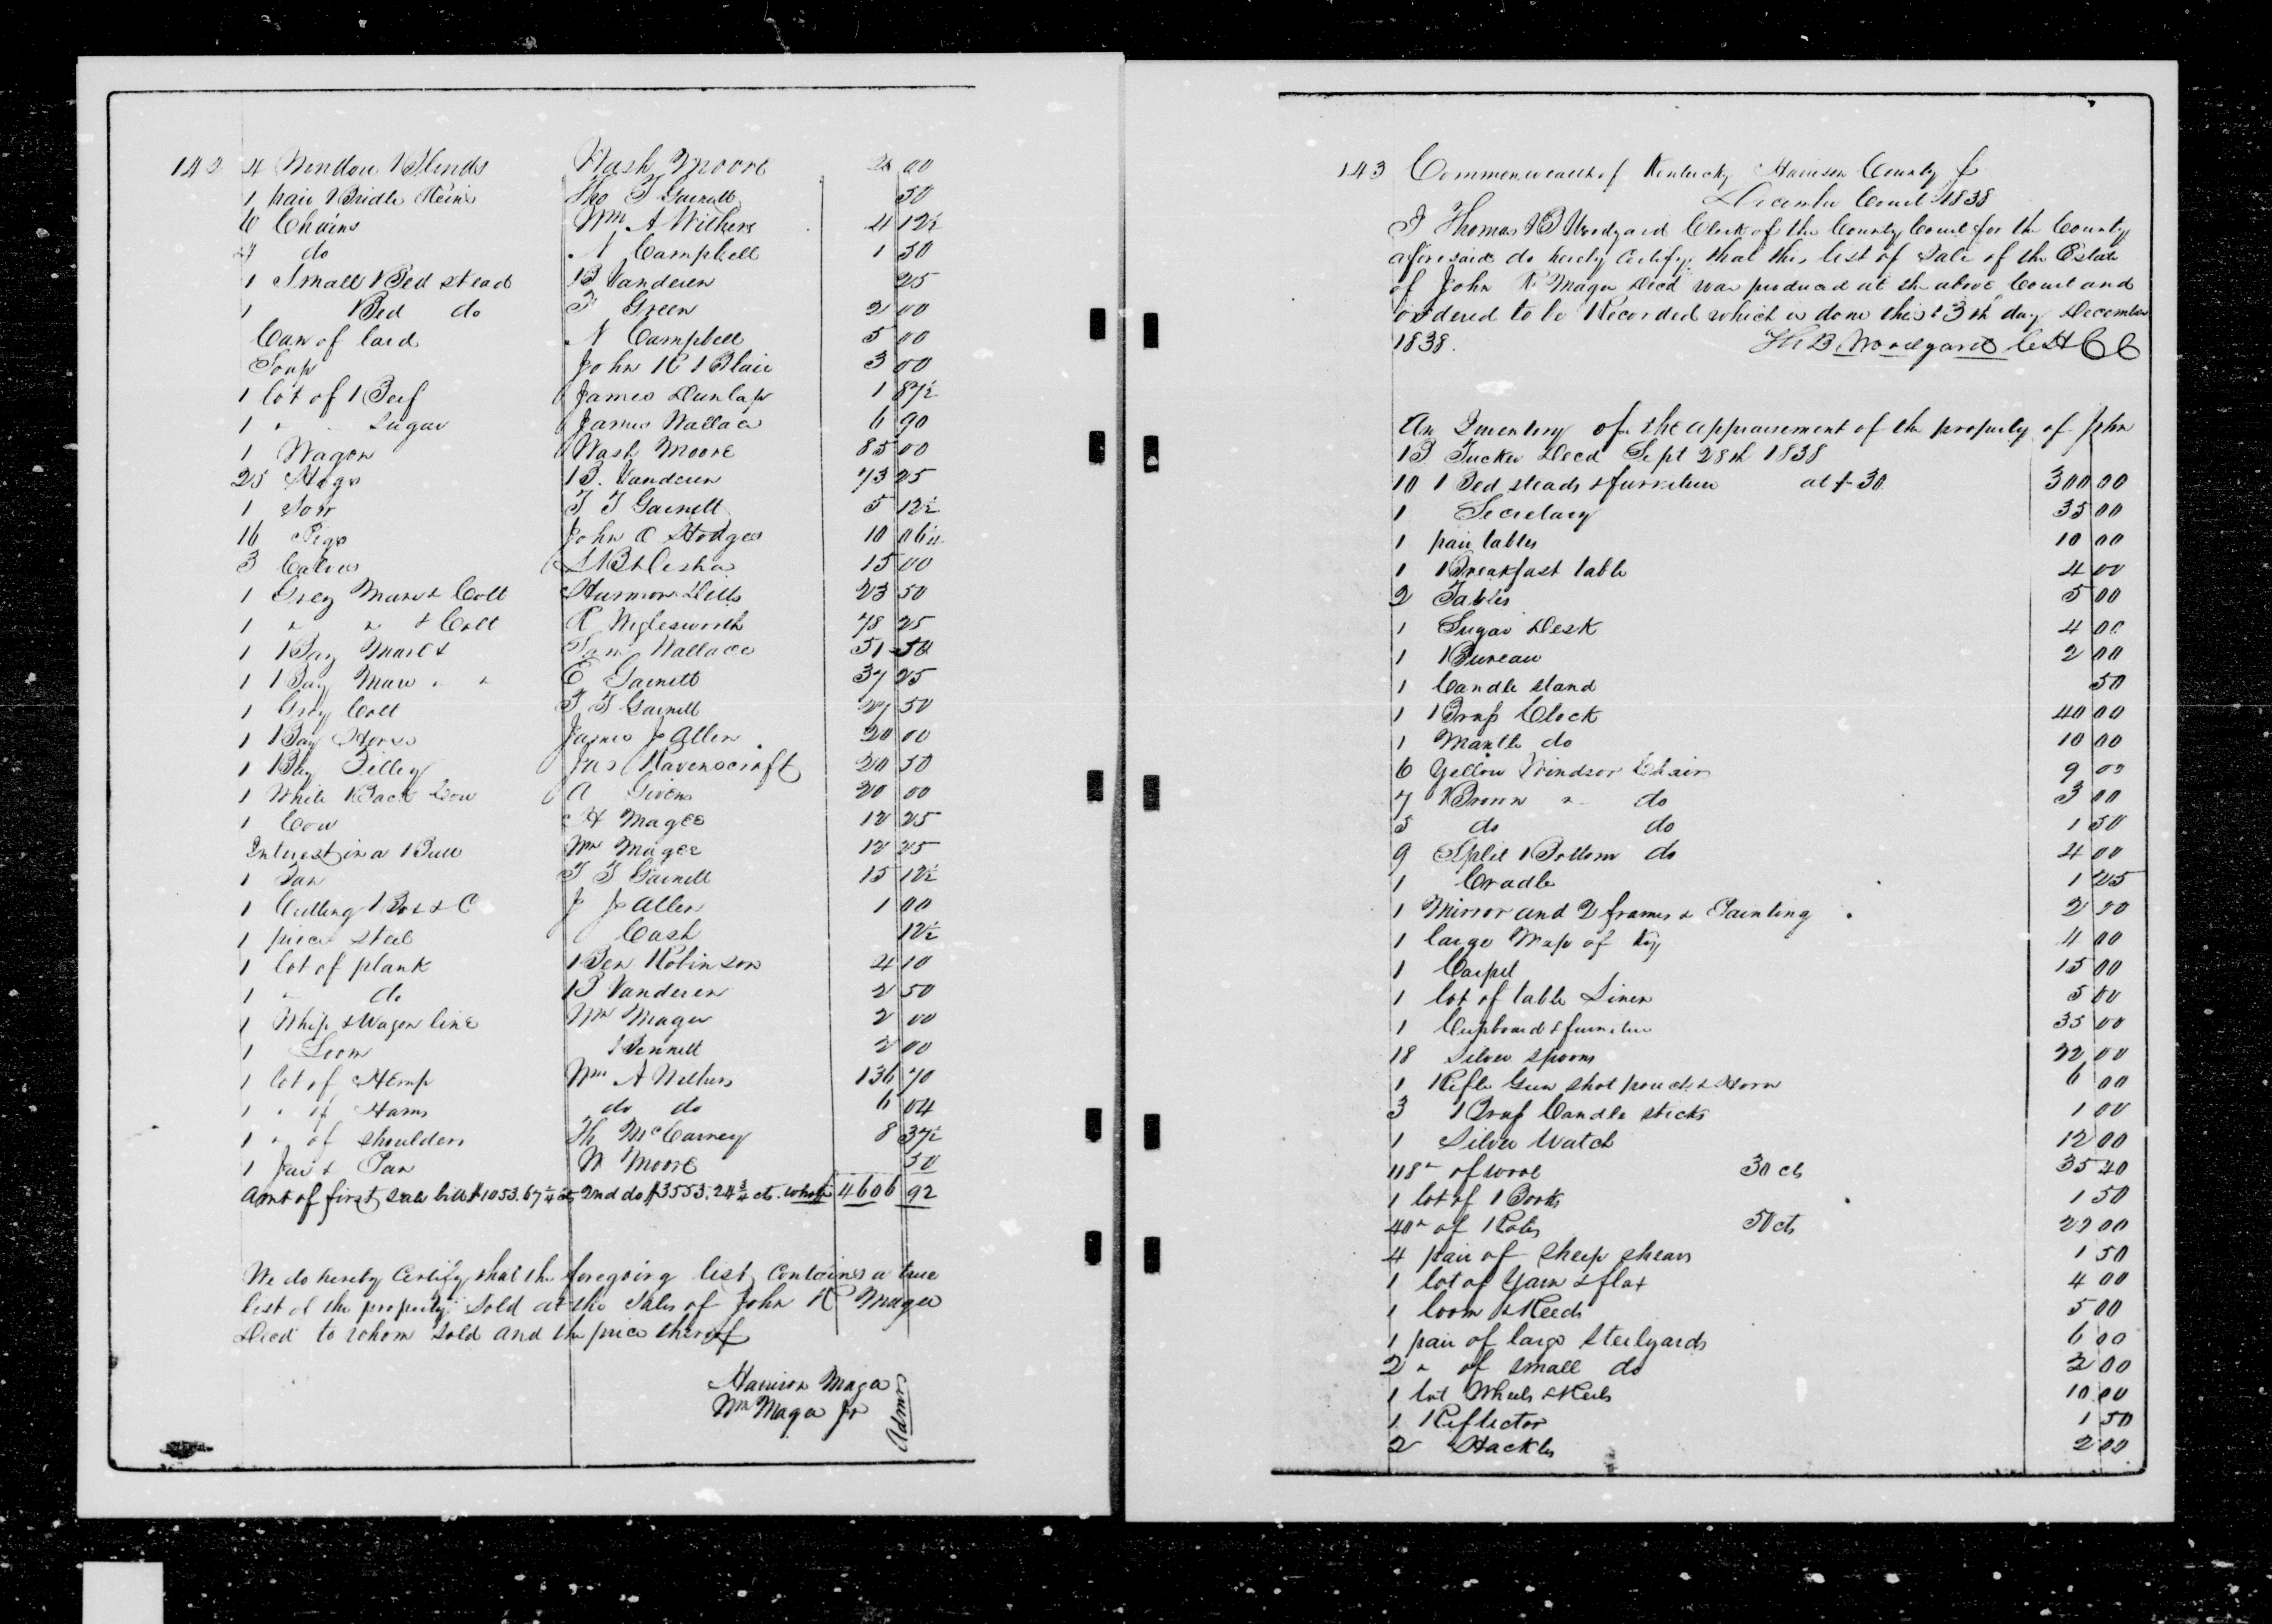 142 4 Window Blinds Wash Moore 2 00
1 pair Bridle Reins Tho T Garnett 50
6 Chairs Wm A Withers 4 12½
7 do N Campbell 1 50
1 Small Bed stead B Vanderen 25
1 Bed do F Green 2 00
Can of lard N Campbell 5 00
Soap John R Blair 3 00
1 lot of Beef James Dunlap 1 87½
1 " " Sugar James Wallace 6 90
1 Wagon Wash Moore 85 00
25 Hogs B. Vanderen 73 25
1 Sow T T Garnett 5 12½
16 Pigs John C Hodges 10 06¼
3 Calves 15 00
1 Grey Mare & Colt Harmon Dills 23 50
1 " " & Colt R Wiglesworth 78 25
1 Bay Mare & Saml Wallace 51 50
1 Bay Mare " " E Garnett 37 25
1 Gray Colt T T Garnett 27 50
1 Bay Horse James J Allen 20 00
1 Bay Filley Jas Ravenscraft 20 50
1 White Back Cow A Givens 20 00
1 Cow H Magee 12 25
Interest in a Bull Wm Magee 12 25
1 Fan T T Garnett 15 12½
1 Cutting Box & C J J Allen 1 00
1 piece Steel Cash 12½
1 lot of plank Ben Robinson 4 10
1 " do B Vanderen 2 50
1 Whip & Wagon line Wm Magee 2 00
1 Loom Bennett 2 00
1 lot of Hemp Wm A Withers 136 70
1 " of Hams do do 6 04
1 " of Shoulders Th McCarney 8 37½
1 Jar & Pan W Moore 50
Amt of first Sale bill $1053.67¼ cts 2nd do $3553.24¾ cts. whole 4606 92
We do hereby Certify that the foregoing list Contains a true
list of the property Sold at the Sales of John R Magee
Decd to whom Sold and the price thereof
Harrison Magee
Wm Magee Jr
Admrs
143 Commonwealth of Kentucky Harrison County Sc
December Court 1838
I Thomas B Woodyard Clerk of the County Court for the County
aforesaid do hereby Certify that this list of Sale of the Estate
of John R Magee Decd was produced at the above Court and
ordered to be Recorded which is done this 13th day December
1838. Th B Woodyard Clk H C C
An Inventory of the appraisement of the property of John
B Tucker Decd Sept 28th 1838
10 Bed steads & furniture at $30 300 00
1 Secretary 35 00
1 pair tables 10 00
1 Breakfast table 4 00
2 Tables 5 00
1 Sugar Desk 4 00
1 Bureau 2 00
1 Candle stand 50
1 Brass Clock 40 00
1 Mantle do 10 00
6 Yellow Windsor Chairs 9 00
7 Brown " do 3 00
5 do do 1 50
9 Split Bottom do 4 00
1 Cradle 1 25
1 Mirror and 2 frames & Painting 2 00
1 large Map of Ky 4 00
1 Carpet 15 00
1 lot of table Linen 5 00
1 Cupboard & furniture 35 00
18 Silver Spoons 22 00
1 Rifle Gun shot pouch & Horn 6 00
3 Brass Candle sticks 1 00
1 Silver Watch 12 00
118 " of wool 30 cts 35 40
1 lot of Books 1 50
40 " of Rolls 50 cts 20 00
4 pair of Sheep shears 1 50
1 lot of Yarn & flax 4 00
1 loom & Reeds 5 00
1 pair of large Steelyards 6 00
2 " of small do 2 00
1 lot Wheels & Reels 10 00
1 Reflector 1 50
2 Hackles 2 00